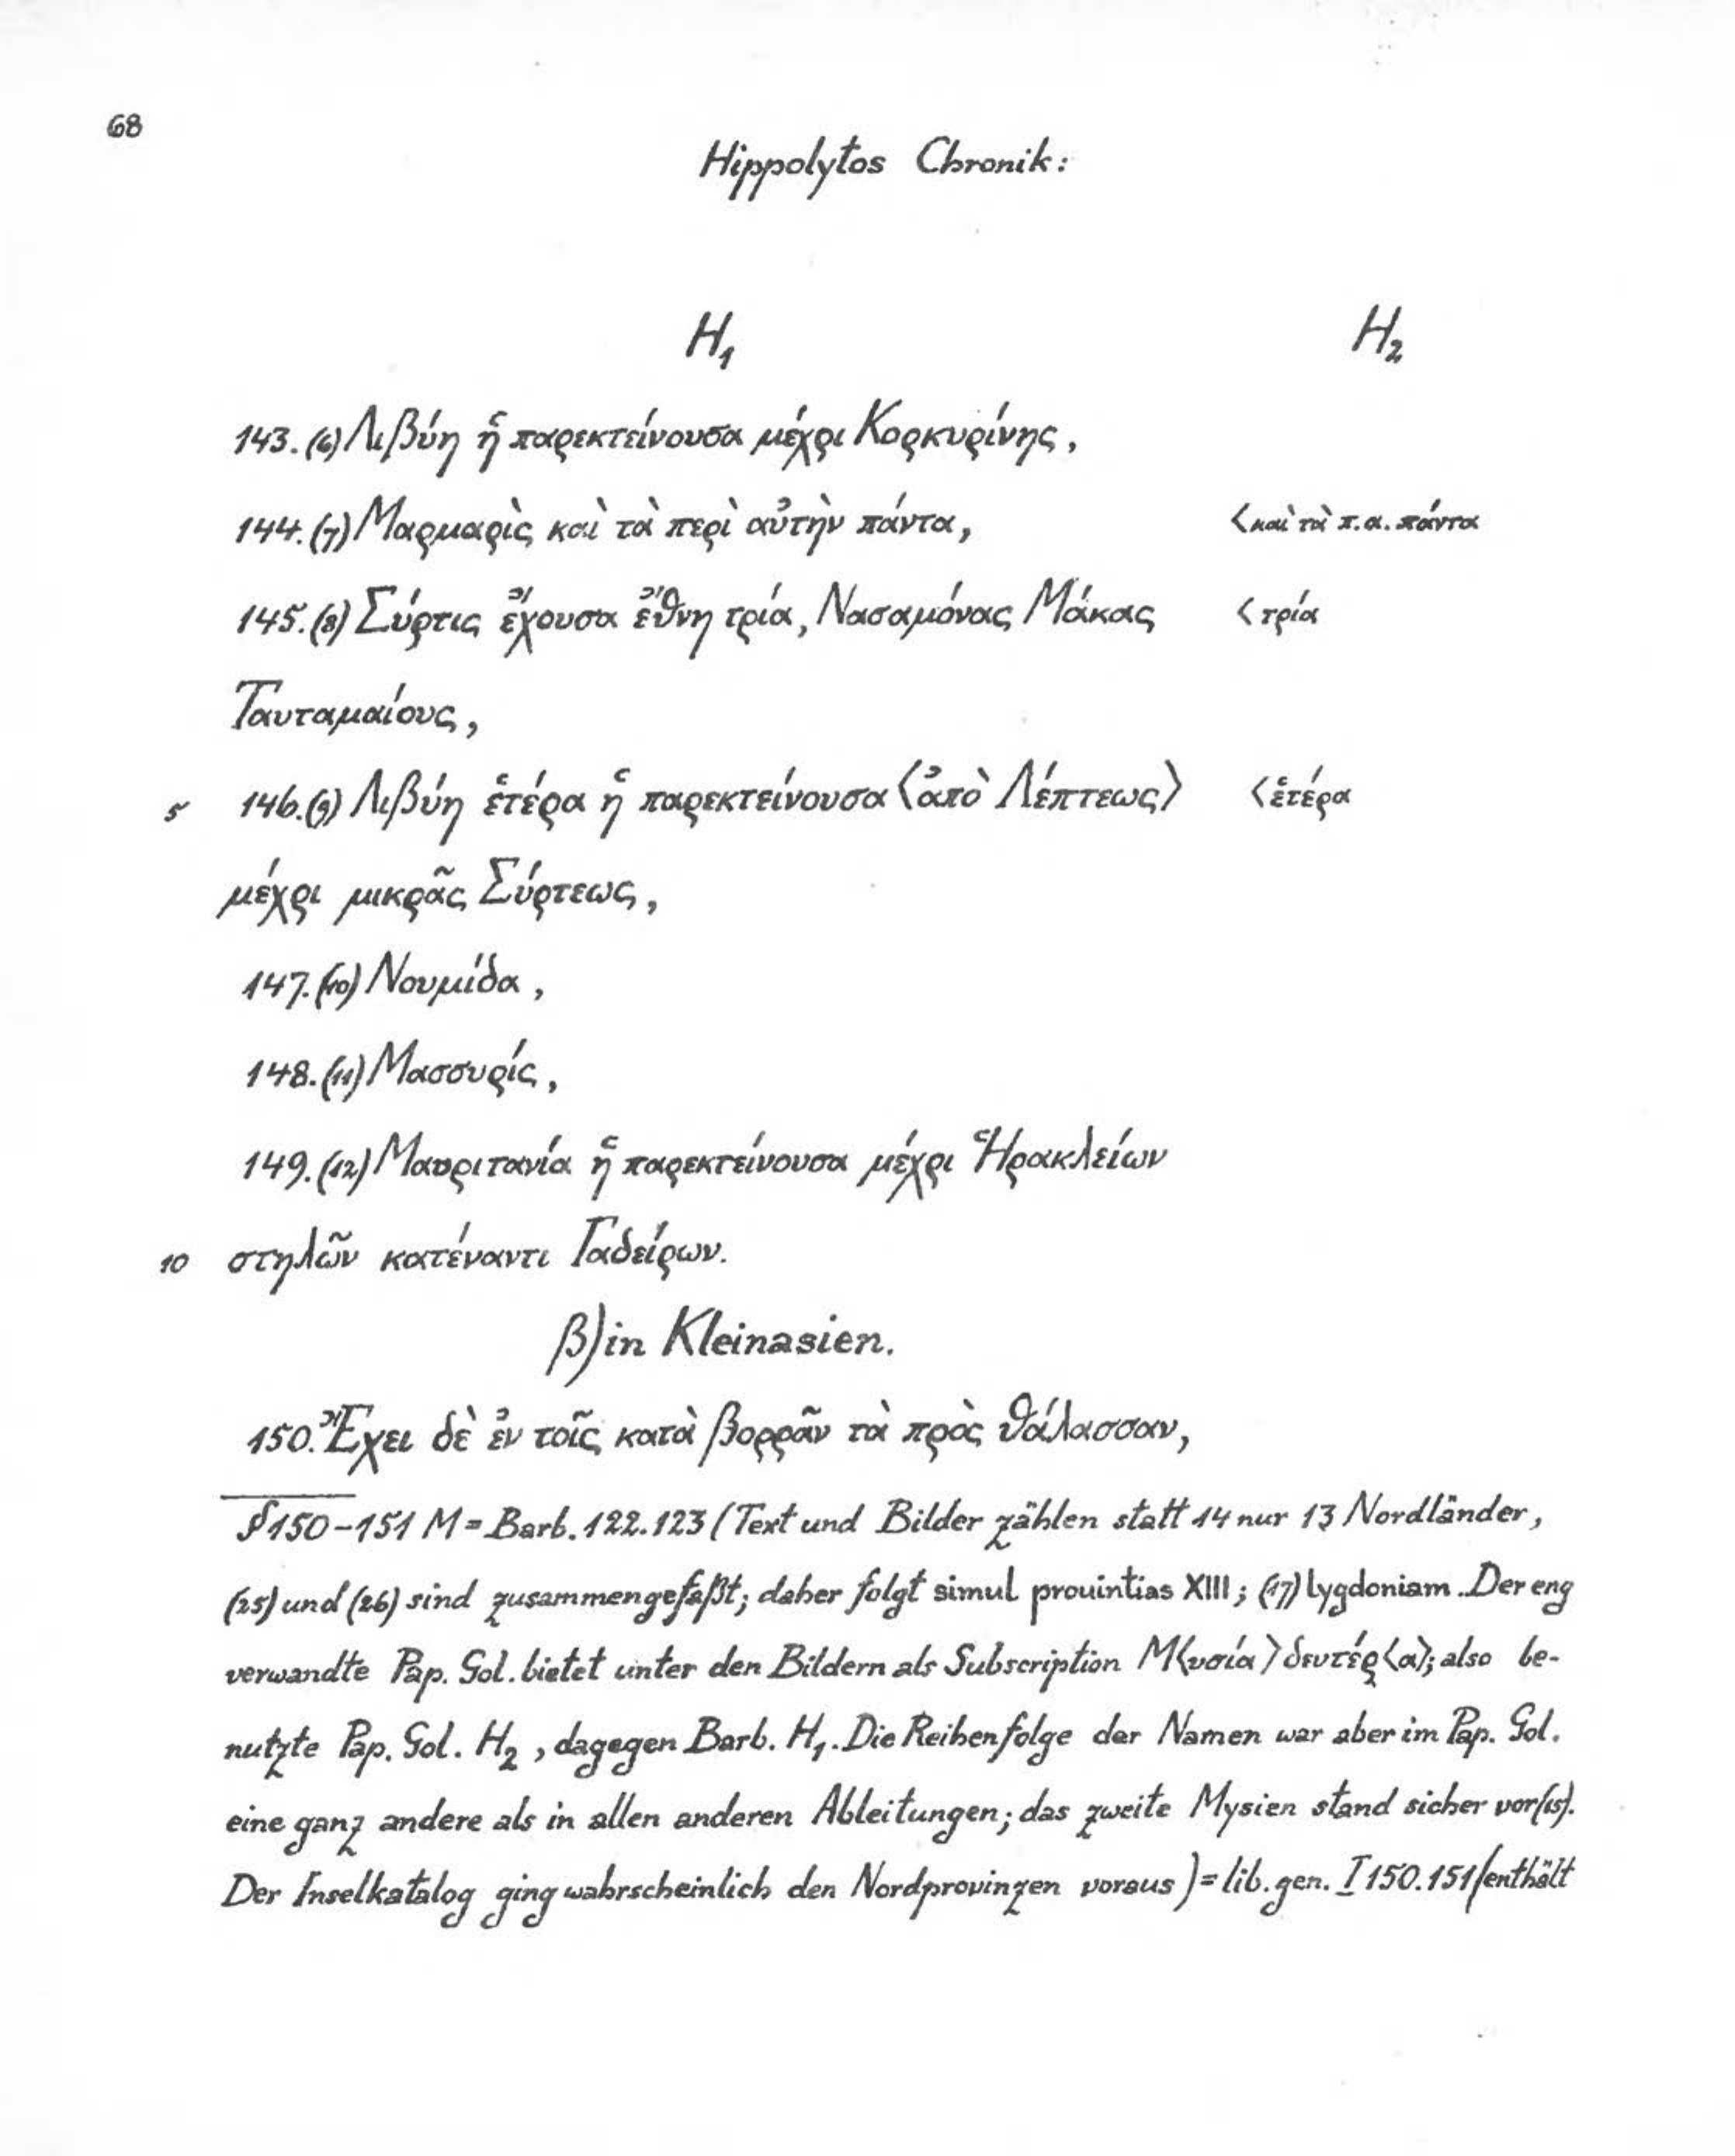 68
Hippolytos Chronik:
H₁ H₂
143. (6) Λιβύη ἡ παρεκτείνουσα μέχρι Κορκυρίνης,
144. (7) Μαρμαρὶς καὶ τὰ περὶ αὐτὴν πάντα, < καὶ τὰ π. α. πάντα
145. (8) Σύρτις ἔχουσα ἔθνη τρία, Νασαμόνας Μάκας < τρία
Ταυταμαίους,
5 146. (9) Λιβύη ἑτέρα ἡ παρεκτείνουσα ⟨ἀπὸ Λέπτεως⟩ < ἑτέρα
μέχρι μικρᾶς Σύρτεως,
147. (10) Νουμίδα,
148. (11) Μασσυρίς,
149. (12) Μαυριτανία ἡ παρεκτείνουσα μέχρι Ἡρακλείων
10 στηλῶν κατέναντι Γαδείρων.
β) in Kleinasien.
150. Ἔχει δὲ ἐν τοῖς κατὰ βορρᾶν τὰ πρὸς θάλασσαν,
§ 150-151 M = Barb. 122.123 (Text und Bilder zählen statt 14 nur 13 Nordländer,
(25) und (26) sind zusammengefaßt; daher folgt simul prouintias XIII; (17) lygdoniam. Der eng
verwandte Pap. Gol. bietet unter den Bildern als Subscription Μ⟨υσία⟩ δευτέρ⟨α⟩; also be-
nutzte Pap. Gol. H₂, dagegen Barb. H₁. Die Reihenfolge der Namen war aber im Pap. Gol.
eine ganz andere als in allen anderen Ableitungen; das zweite Mysien stand sicher vor (15).
Der Inselkatalog ging wahrscheinlich den Nordprovinzen voraus) = lib. gen. I 150.151 (enthält